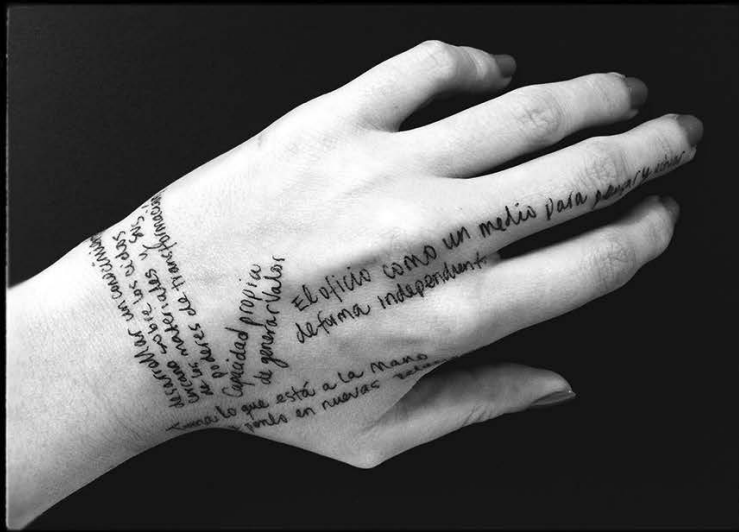 desarrollar un conocimiento
cercano sobre los ciclos
de los materiales y sus
poderes de transformación
Capacidad propia
de generar valor
El oficio como un medio para pensar y
de forma independiente
Toma lo que está a la mano
y ponlo en nuevas